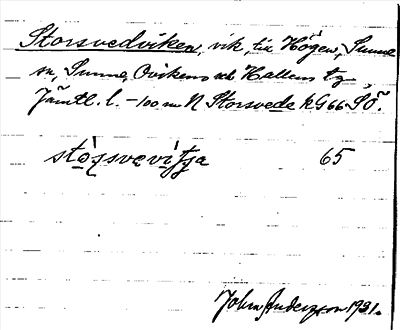 Storsvedviken, vik, till Högen, Sunne
sn, Sunne, Ovikens och Hallens tg
Jämtl. l. – 100 m N Storsvede kG66 SÖ.
stò̱ʂsvevi̱tja 65
John Anderzon 1931.